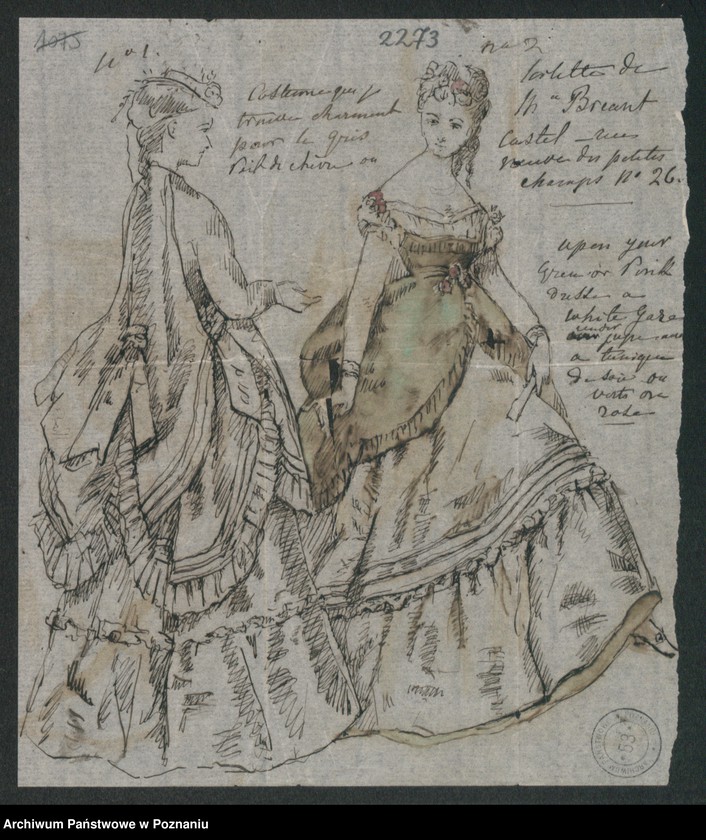 1075
2273
nº 1.
nº 2
Costume qui
trouve charmant
pour le gris
Poil de chèvre ou
toilette de
Mᵐᵉ Breant
Castel - rue
neuve des petites
champs Nº 26.
upon your
Green or Pink
dresse a
white gaze
under jupe
a tunique
de soie ou
verte ou
rose
ARCHIWUM
53
Archiwum Państwowe w Poznaniu